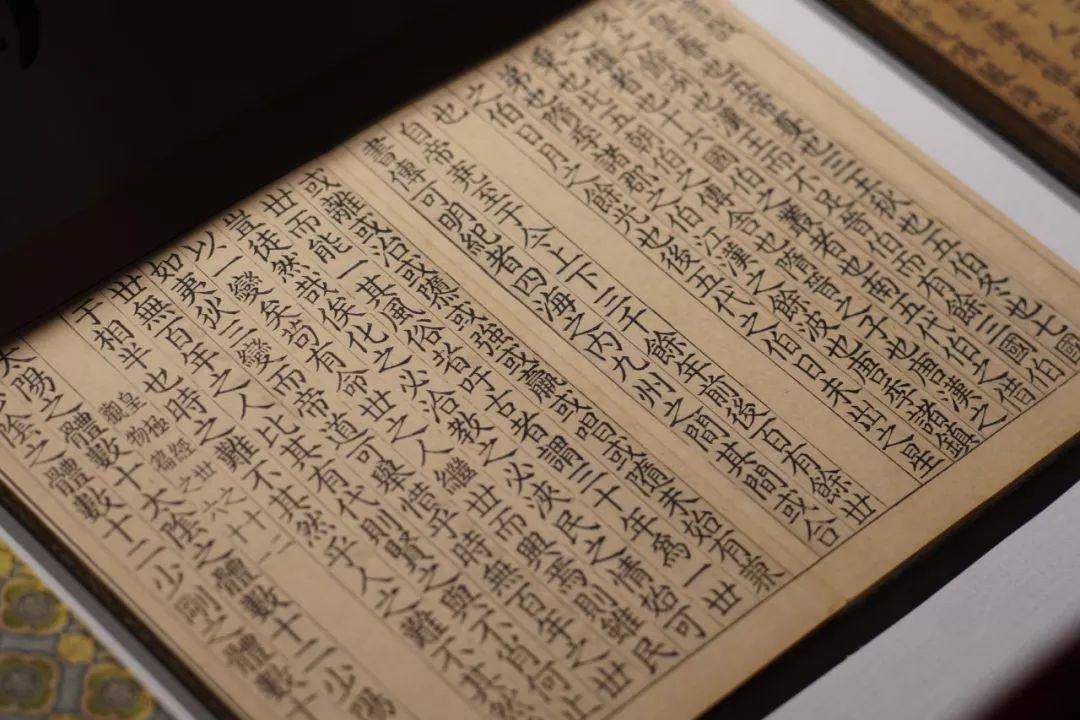 皇春也五帝夏也三王秋也五伯冬也七國
冬之餘冽也漢王而不足晉伯而有餘三國伯
之雄者也十六國伯之叢者也南五代伯之借
乘也北五朝伯之傳舍也隋晉之子也唐漢之
弟也隋季諸郡之伯江漢之餘波也唐季諸鎮
之伯日月之餘光也後五代之伯日未出之星
也
自帝堯至于今上下三千餘年前後百有餘丗
書傳可明紀者四海之內九州之間其間或合
或離或治或隳或強或羸或唱或隨未始有兼
丗而能一其風俗者吁古者謂三十年為一丗
豈徒然哉俟化之必洽教之必浹民之情始可
以一變矣苟有命丗之人繼丗而興焉則雖民
如夷狄三變而帝道可舉惜乎時無百年之丗
丗無百年之人比其有代則賢之與不肖何止
于相半也時之難不其然乎人之難不其然
皇極經丗之六十二
觀物篇之
太陽之體數十太陰之體數十二少陽
陰之體數十二少剛之體數十